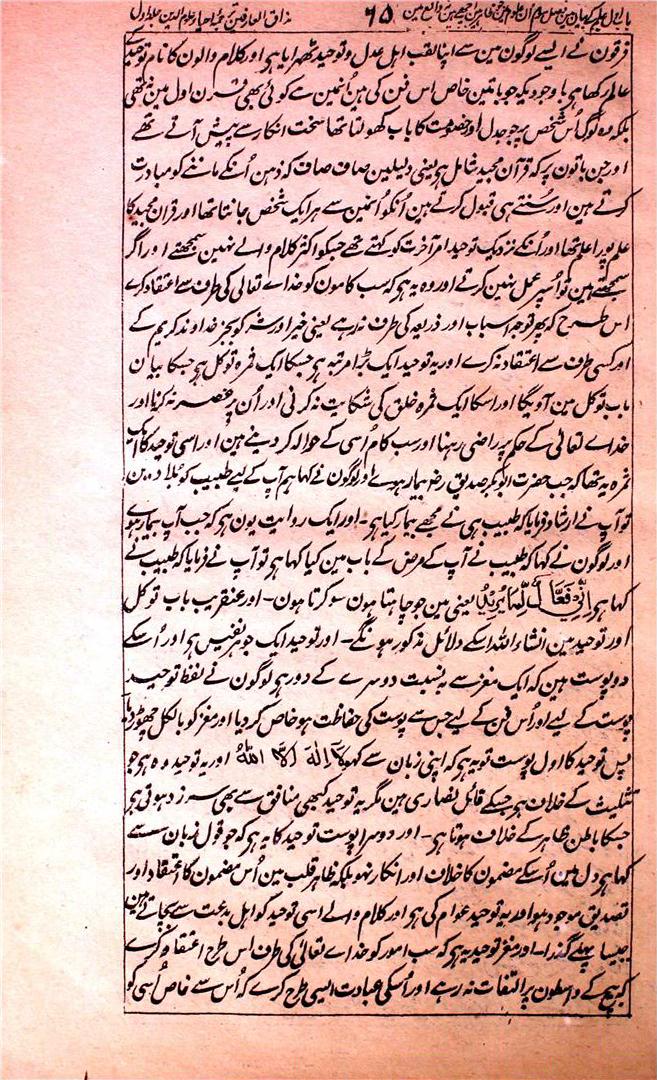 باب اول علم کے بیان مین فصل سوم ان علوم مین ۶۵ مذاق العارفین ترجمہ احیاء علوم الدین جلد اول
فرقون نے ایسے لوگون مین سے اپنا لقب اہل عدل و توحید ٹھہرایا ہی اور کلام والون کا نام توحید کے
عالم رکھا ہی باوجودیکہ جو باتین خاص اس فن کی ہین اُنمین سے کوئی بھی قرن اول مین نہ تھی
بلکہ وہ لوگ اُس شخص پر جو جدل اور خصومت کا باب کھولتا تھا سخت انکار سے پیش آتے تھے
اور جن باتون پر کہ قرآن مجید شامل ہی یعنی دلیلین صاف صاف کہ ذہن اُنکے ماننے کو مبادرت
کرتے ہین اور سُنتے ہی قبول کرتے ہین اُنکو اُنمین سے ہر ایک شخص جانتا تھا اور قرآن مجید کا
علم پورا علم تھا اور اُنکے نزدیک توحید امر آخرت کو کہتے تھے جسکو اکثر کلام والے نہین سمجھتے اور اگر
سمجھتے ہین تو اُسپر عمل نہین کرتے اور وہ یہ ہی کہ سب کامون کو خداے تعالی کی طرف سے اعتقاد کرے
اس طرح کہ پھر توجہ اسباب اور ذریعہ کی طرف نہ رہے یعنی خیر اور شر کو بجز خداوند کریم کے
اور کسی طرف سے اعتقاد نہ کرے اور یہ توحید ایک بڑا مرتبہ ہی جسکا ایک ثمرہ توکل ہی جسکا بیان
باب توکل مین آویگا اور اسکا ایک ثمرہ خلق کی شکایت نہ کرنی اور اُن پر غصہ نہ کرنا اور
خداے تعالی کے حکم پر راضی رہنا اور سب کام اُسی کے حوالہ کر دینے ہین اور اسی توحید کا ایک
ثمرہ یہ تھا کہ جب حضرت ابوبکر صدیق رضہ بیمار ہوے اور لوگون نے کہا ہم آپ کے لیے طبیب کو بلا دین
تو آپ نے ارشاد فرمایا کہ طبیب ہی نے مجھے بیمار کیا ہی۔ اور ایک روایت یون ہی کہ جب آپ بیمار ہوے
اور لوگون نے کہا کہ طبیب نے آپ کے مرض کے باب مین کیا کہا ہی تو آپ نے فرمایا کہ طبیب نے
کہا ہی اِنِّیْ فَعَّالٌ لِّمَا یُرِیْدُ یعنی مین جو چاہتا ہون سو کرتا ہون۔ اور عنقریب باب توکل
اور توحید مین انشاء اللہ اسکے دلائل مذکور ہونگے۔ اور توحید ایک جوہر نفیس ہی اور اُسکے
دو پوست ہین کہ ایک مغز سے بہ نسبت دوسرے کے دور ہی لوگون نے لفظ توحید
پوست کے لیے اور اُس فن کے لیے جس سے پوست کی حفاظت ہو خاص کر دیا اور مغز کو بالکل چھوڑ دیا
پس توحید کا اول پوست تو یہ ہی کہ اپنی زبان سے کہو لَآ اِلٰہَ اِلَّا اللّٰہُ اور یہ توحید وہ ہی جو
تثلیث کے خلاف ہی جسکے قائل نصاری ہین مگر یہ توحید کبھی منافق سے بھی سرزد ہوتی ہی
جسکا باطن ظاہر کے خلاف ہوتا ہی۔ اور دوسرا پوست توحید کا یہ ہی کہ جو قول زبان سے
کہا ہی دل مین اُسکے مضمون کا خلاف اور انکار نہو بلکہ ظاہر قلب مین اُس مضمون کا اعتقاد اور
تصدیق موجود ہو اور یہ توحید عوام کی ہی اور کلام والے اسی توحید کو اہل بدعت سے بچاتے ہین
جیسا پہلے گذرا۔ اور مغز توحید یہ ہی کہ سب امور کو خداے تعالی کی طرف اس طرح اعتقاد کرے
کہ بیچ کے واسطون پر التفات نہ رہے اور اُسکی عبادت ایسی طرح کرے کہ اُس سے خاص اُسی کو